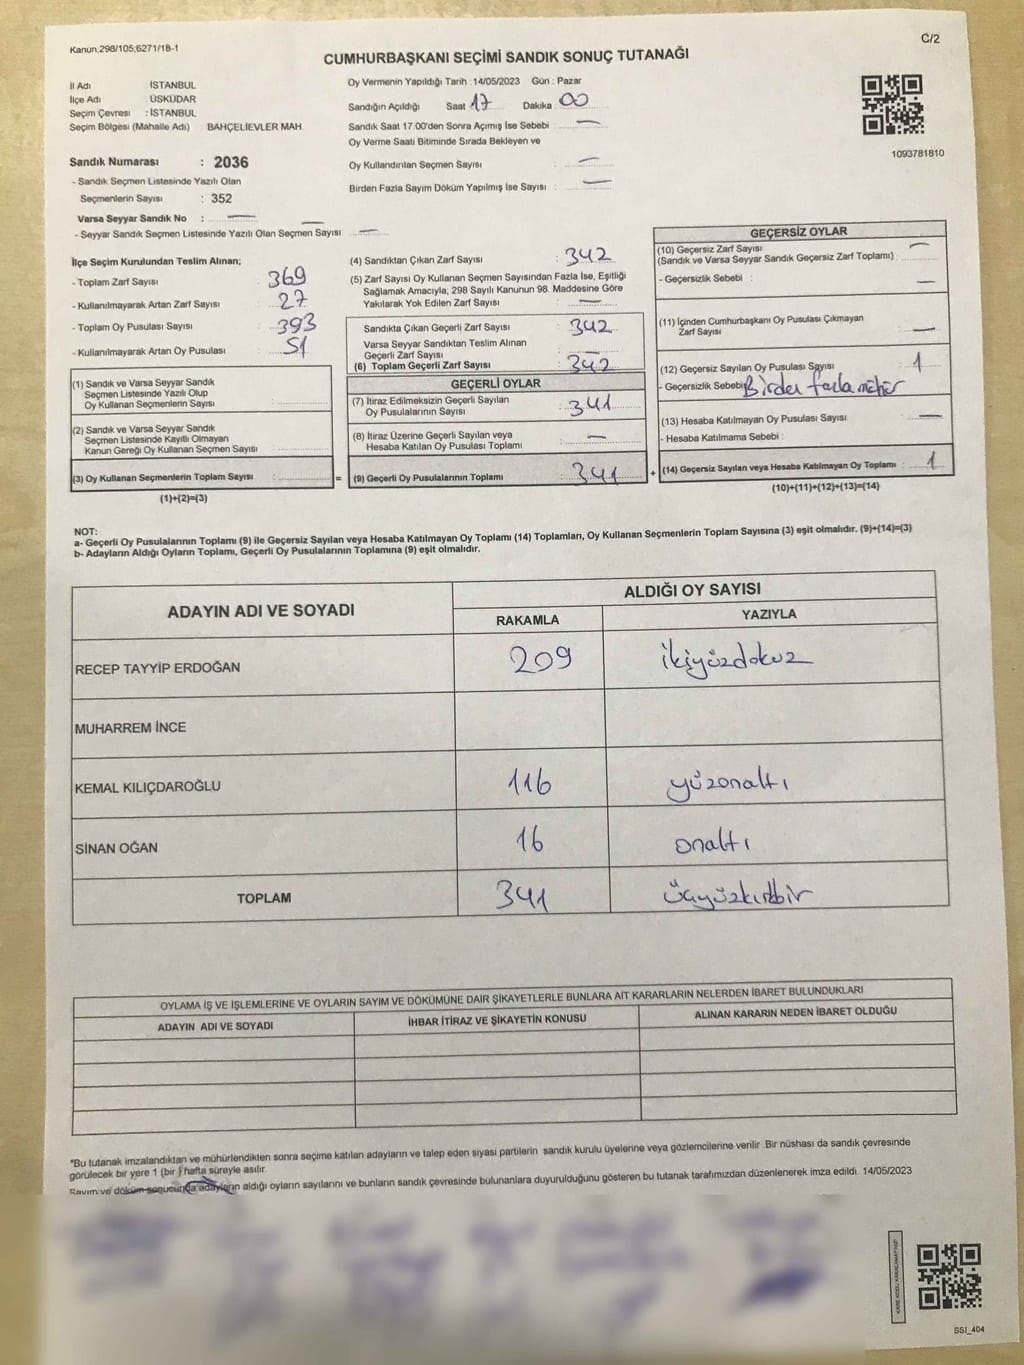 Kanun,298/105,6271/18-1
C/2
CUMHURBAŞKANI SEÇİMİ SANDIK SONUÇ TUTANAĞI
İl Adı İSTANBUL
İlçe Adı ÜSKÜDAR
Seçim Çevresi : İSTANBUL
Seçim Bölgesi (Mahalle Adı) BAHÇELİEVLER MAH.
Oy Vermenin Yapıldığı Tarih :14/05/2023 Gün : Pazar
Sandığın Açıldığı Saat 17 Dakika 00
Sandık Saat 17:00'den Sonra Açımış İse Sebebi : —
Oy Verme Saati Bitiminde Sırada Bekleyen ve
Oy Kullandırılan Seçmen Sayısı : —
Birden Fazla Sayım Döküm Yapılmış İse Sayısı : —
1093781810
Sandık Numarası : 2036
- Sandık Seçmen Listesinde Yazılı Olan
Seçmenlerin Sayısı : 352
Varsa Seyyar Sandık No : —
- Seyyar Sandık Seçmen Listesinde Yazılı Olan Seçmen Sayısı —
İlçe Seçim Kurulundan Teslim Alınan;
- Toplam Zarf Sayısı : 369
- Kullanılmayarak Artan Zarf Sayısı : 27
- Toplam Oy Pusulası Sayısı : 393
- Kullanılmayarak Artan Oy Pusulası : 51
(1) Sandık ve Varsa Seyyar Sandık
Seçmen Listesinde Yazılı Olup
Oy Kullanan Seçmenlerin Sayısı :
(2) Sandık ve Varsa Seyyar Sandık
Seçmen Listesinde Kayıtlı Olmayan
Kanun Gereği Oy Kullanan Seçmen Sayısı :
(3) Oy Kullanan Seçmenlerin Toplam Sayısı : =
(1)+(2)=(3)
(4) Sandıktan Çıkan Zarf Sayısı : 342
(5) Zarf Sayısı Oy Kullanan Seçmen Sayısından Fazla İse, Eşitliği
Sağlamak Amacıyla, 298 Sayılı Kanunun 98. Maddesine Göre
Yakılarak Yok Edilen Zarf Sayısı : —
Sandıkta Çıkan Geçerli Zarf Sayısı : 342
Varsa Seyyar Sandıktan Teslim Alınan
Geçerli Zarf Sayısı : —
(6) Toplam Geçerli Zarf Sayısı : 342
GEÇERLİ OYLAR
(7) İtiraz Edilmeksizin Geçerli Sayılan
Oy Pusulalarının Sayısı : 341
(8) İtiraz Üzerine Geçerli Sayılan veya
Hesaba Katılan Oy Pusulası Toplamı : —
(9) Geçerli Oy Pusulalarının Toplamı : 341 +
GEÇERSİZ OYLAR
(10) Geçersiz Zarf Sayısı
(Sandık ve Varsa Seyyar Sandık Geçersiz Zarf Toplamı) : —
- Geçersizlik Sebebi : —
(11) İçinden Cumhurbaşkanı Oy Pusulası Çıkmayan
Zarf Sayısı : —
(12) Geçersiz Sayılan Oy Pusulası Sayısı : 1
- Geçersizlik Sebebi Birden fazla mühür
(13) Hesaba Katılmayan Oy Pusulası Sayısı : —
- Hesaba Katılmama Sebebi :
(14) Geçersiz Sayılan veya Hesaba Katılmayan Oy Toplamı : 1
(10)+(11)+(12)+(13)=(14)
NOT:
a- Geçerli Oy Pusulalarının Toplamı (9) ile Geçersiz Sayılan veya Hesaba Katılmayan Oy Toplamı (14) Toplamları, Oy Kullanan Seçmenlerin Toplam Sayısına (3) eşit olmalıdır. (9)+(14)=(3)
b- Adayların Aldığı Oyların Toplamı, Geçerli Oy Pusulalarının Toplamına (9) eşit olmalıdır.
ADAYIN ADI VE SOYADI
ALDIĞI OY SAYISI
RAKAMLA YAZIYLA
RECEP TAYYİP ERDOĞAN 209 ikiyüzdokuz
MUHARREM İNCE
KEMAL KILIÇDAROĞLU 116 yüzonaltı
SİNAN OĞAN 16 onaltı
TOPLAM 341 üçyüzkırkbir
OYLAMA İŞ VE İŞLEMLERİNE VE OYLARIN SAYIM VE DÖKÜMÜNE DAİR ŞİKAYETLERLE BUNLARA AİT KARARLARIN NELERDEN İBARET BULUNDUKLARI
ADAYIN ADI VE SOYADI İHBAR İTİRAZ VE ŞİKAYETİN KONUSU ALINAN KARARIN NEDEN İBARET OLDUĞU
*Bu tutanak imzalandıktan ve mühürlendikten sonra seçime katılan adayların ve talep eden siyasi partilerin sandık kurulu üyelerine veya gözlemcilerine verilir .Bir nüshası da sandık çevresinde
görülecek bir yere 1 (bir ) hafta süreyle asılır.
Sayım ve döküm sonucunda adayların aldığı oyların sayılarını ve bunların sandık çevresinde bulunanlara duyurulduğunu gösteren bu tutanak tarafımızdan düzenlenerek imza edildi. 14/05/2023
SSI_404